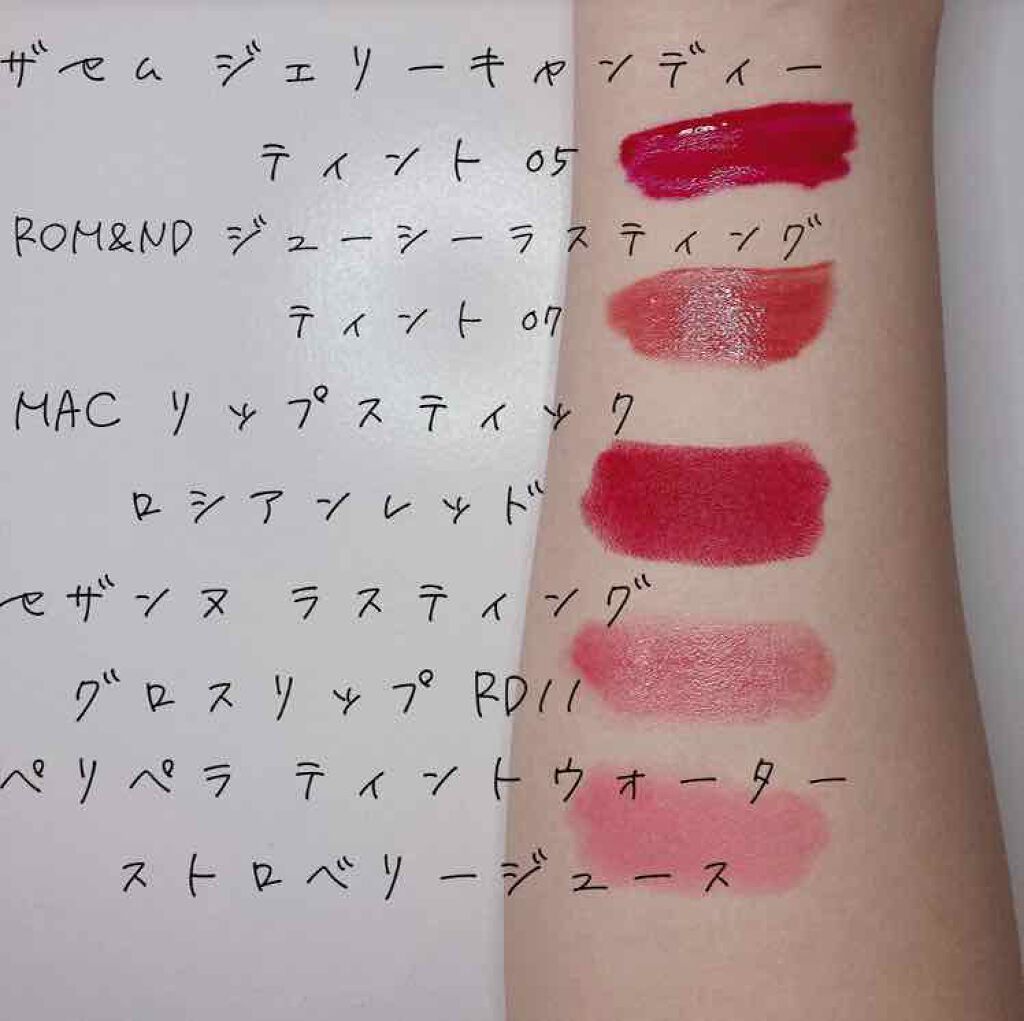 ザセム ジェリーキャンディー
ティント 05
ROM&ND ジューシーラスティング
ティント 07
MAC リップスティック
ロシアンレッド
セザンヌ ラスティング
グロスリップ RD11
ペリペラ ティントウォーター
ストロベリージュース